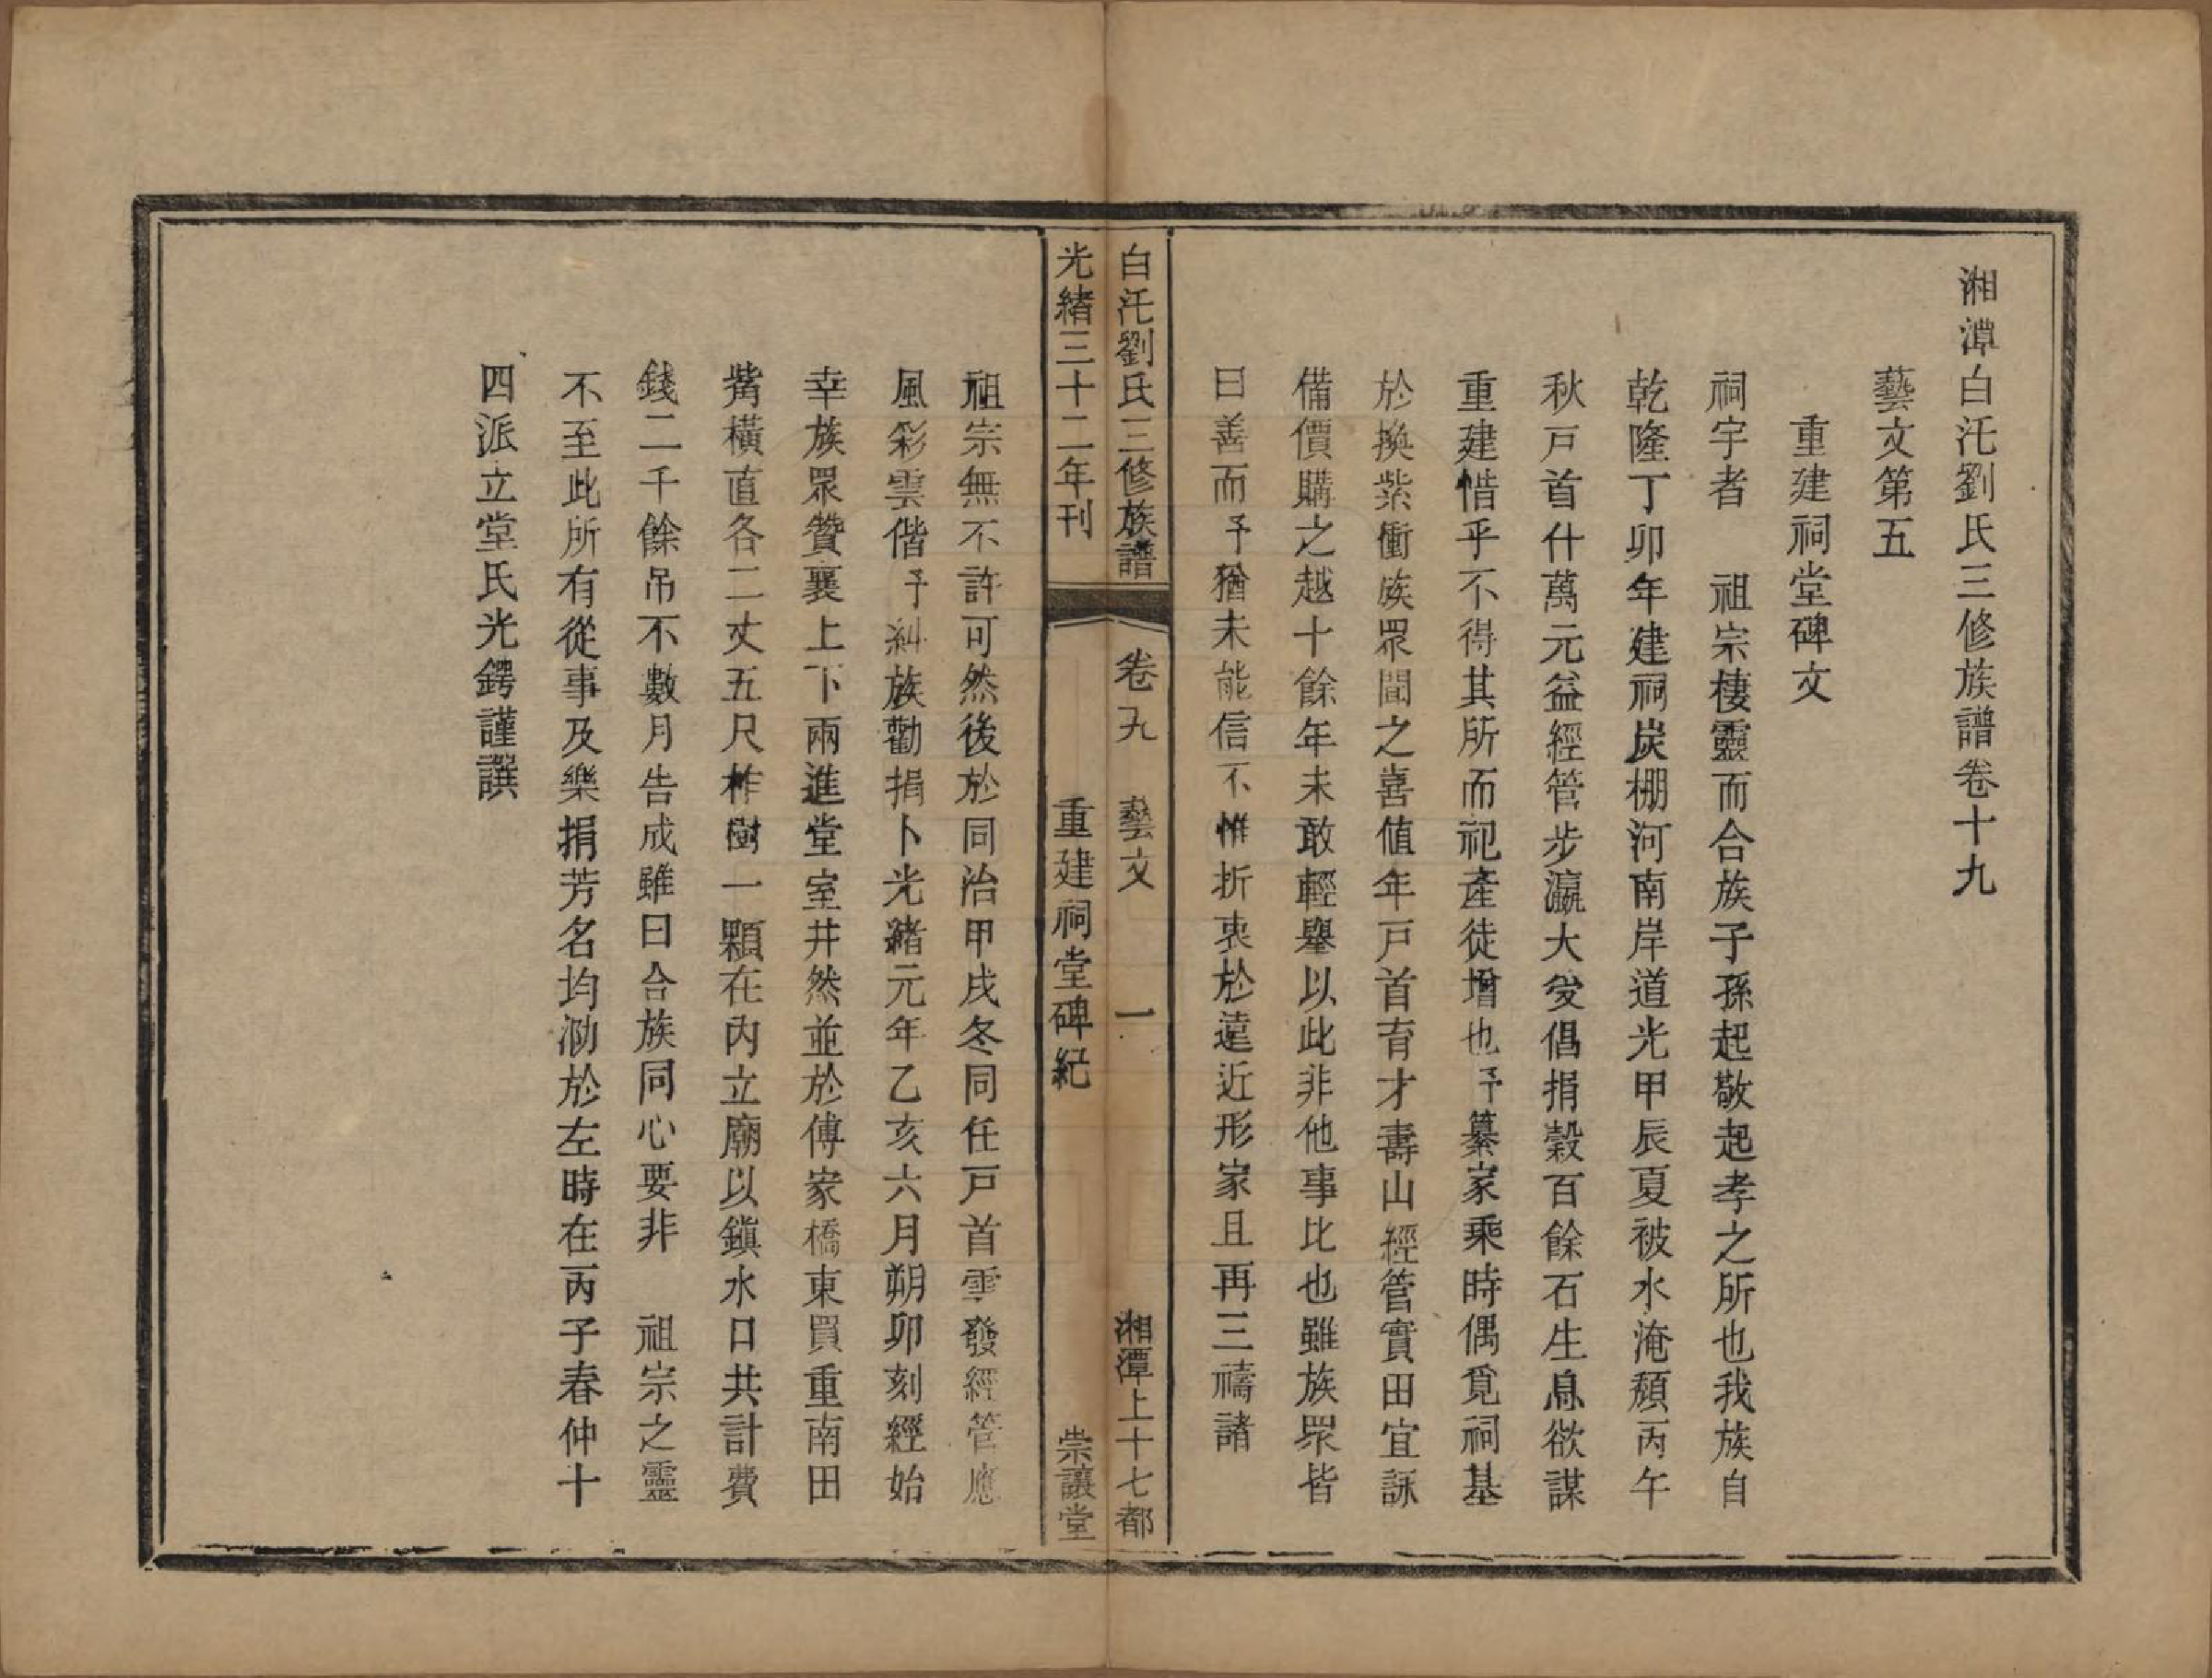 湘潭白汑劉氏三修族譜卷十九
藝文第五
重建祠堂碑文
祠宇者　祖宗棲靈而合族子孫起敬起孝之所也我族自
乾隆丁卯年建祠炭棚河南岸道光甲辰夏被水淹頹丙午
秋戸首什萬元益經管步瀛大夋倡捐穀百餘石生息欲謀
重建惜乎不得其所而祀產徒增也予纂家乘時偶覓祠基
於換紫衝族眾聞之喜値年戸首育才壽山經管實田宜詠
備價購之越十餘年未敢輕舉以此非他事比也雖族眾皆
曰善而予猶未能信不惟折衷於遠近形家且再三禱諸
白汑劉氏三修族譜
卷九　藝文　一
湘潭上十七都
光緒三十二年刊
重建祠堂碑紀
崇讓堂
祖宗無不許可然後於同治甲戌冬同任戸首雲發經管應
風彩雲偕予糾族勸捐卜光緒元年乙亥六月朔卯刻經始
幸族眾贊襄上下兩進堂室井然並於傅家橋東買重南田
觜橫直各二丈五尺柞樹一顆在內立廟以鎮水口共計費
錢二千餘吊不數月告成雖曰合族同心要非　祖宗之靈
不至此所有從事及樂捐芳名均泐於左時在丙子春仲十
四派立堂氏光鍔謹譔